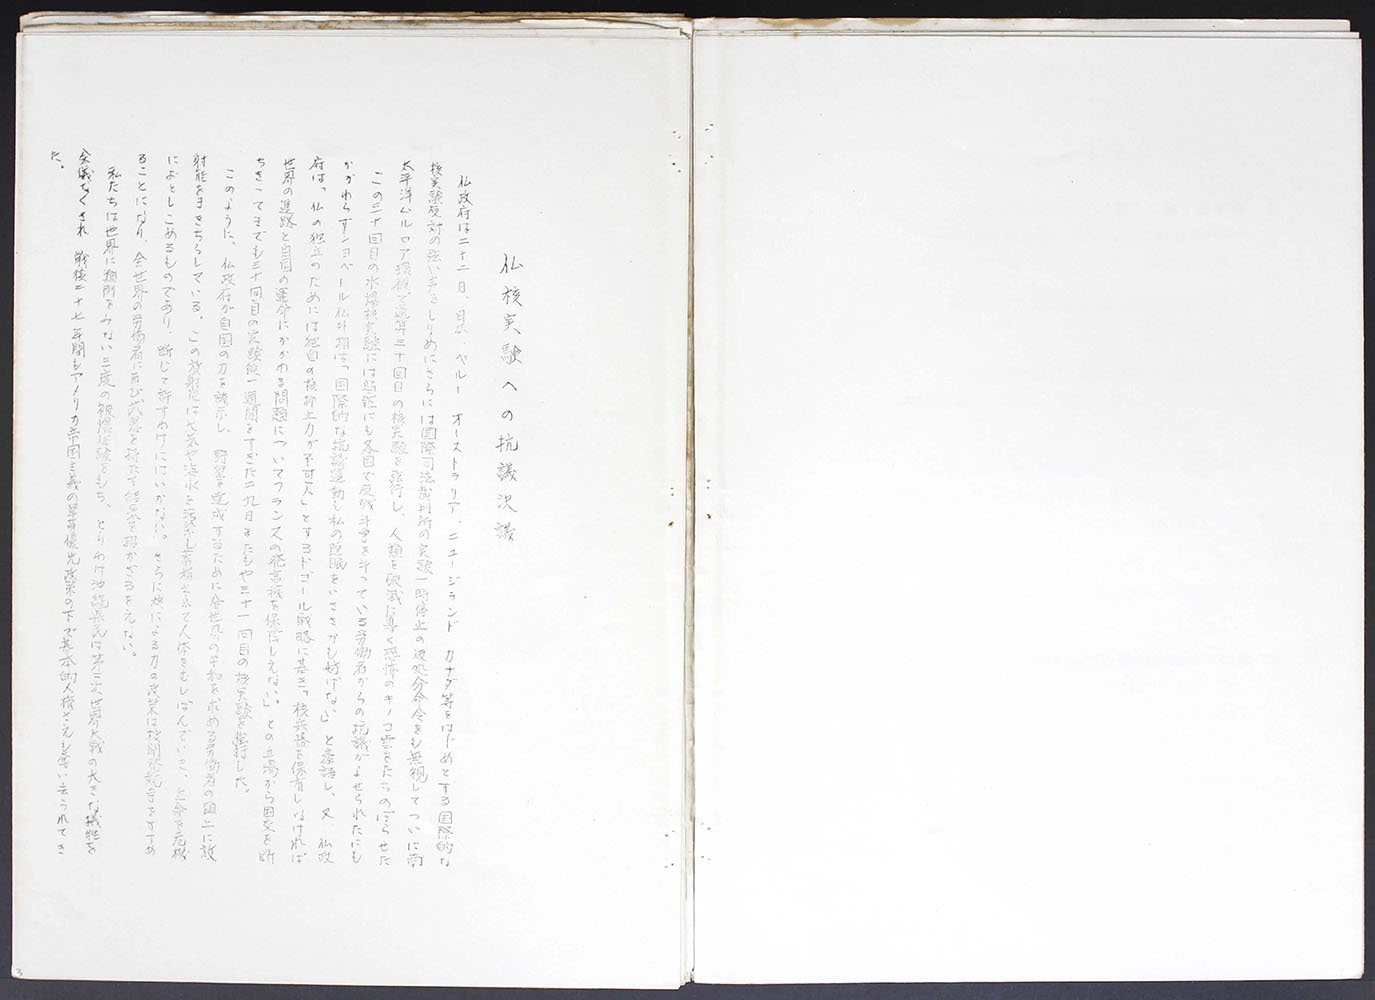 仏核実験への抗議決議
仏政府は二十二日、日本、ペルー オーストラリア、ニュージランド カナダ等をはじめとする国際的な
核実験反対の強い声をしりめにさらには国際司法裁判所の実験一時停止の仮処分命令をも無視してついに南
太平洋ムルロア環礁で通算三十回目の核実験を強行し、人類を破滅に導く恐怖のキノコ雲をたちのぼらせた
この三十回目の水爆核実験には当然にも各国で反戦斗争を斗っている労働者からの抗議がよせられたにも
かかわらずジョベール仏外相は「国際的な抗議運動も私の睡眠をいささかも妨げない」と豪語し、又 仏政
府は「仏の独立のためには独自の核抑止力が不可欠」とするドゴール戦略に基き「核兵器を保有しなければ
世界の進路と自国の運命にかかわる問題についてフランスの発言権を保障しえない」との立場から国交を断
ちきってまでも三十回目の実験後一週間をすぎた二九日またもや三十一回目の核実験を強行した。
このように、仏政府が自国の力を誇示し、野望を達成するために全世界の平和を求める労働者の頭上に放
射能をまきちらしている。この放射能は大気や海水を汚染し蓄積されて人体をむしばんでいき、生命を危機
におとしこめるものであり、断じて許すわけにはいかない。さらに核による力の政策は核開発競争をすすめ
ることになり、全世界の労働者に再び武器を持たす結果を招かざるをえない。
私たちは世界に類例をみない三度の被爆体験をもち、とりわけ沖縄県民は第二次世界大戦の大きな犠牲を
余儀なくされ 戦後二十七年間もアメリカ帝国主義の軍事優先政策の下で基本的人権さえも奪い去られてき
た。
3